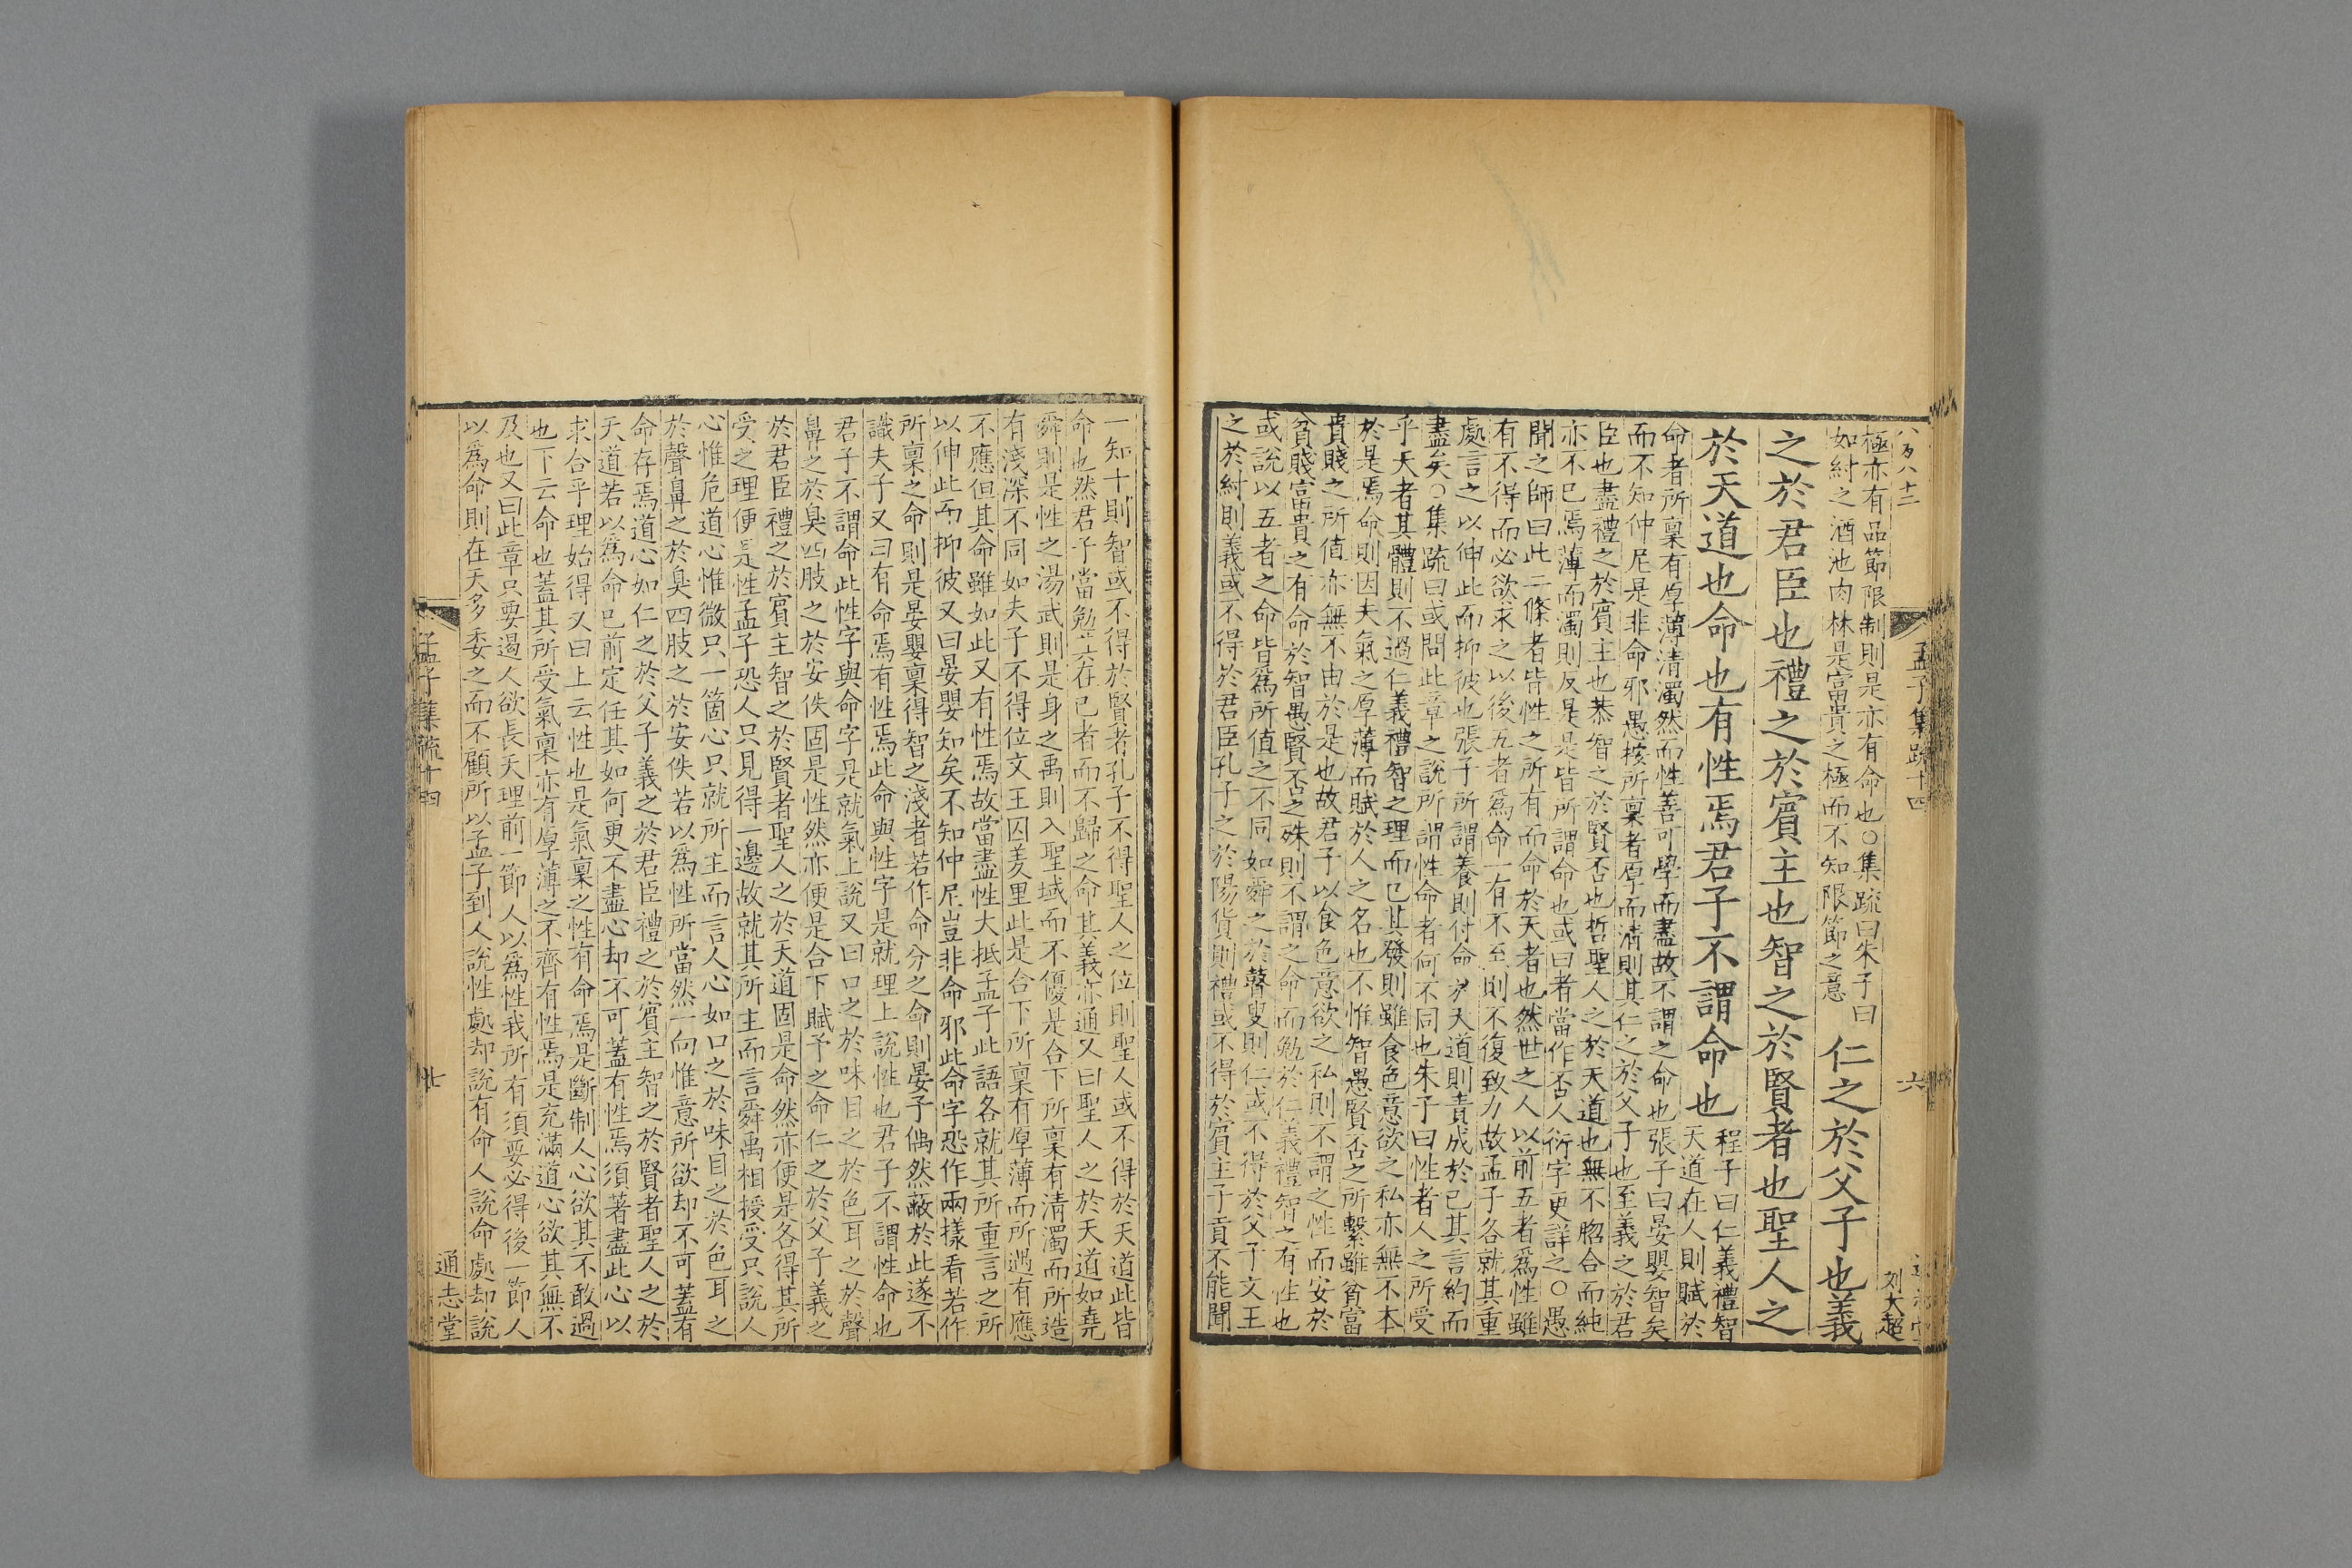 八百八十二
孟子集疏十四
六
刘大超
極亦有品節限制則是亦有命也○集疏曰朱子曰
如紂之酒池肉林是富貴之極而不知限節之意
仁之於父子也義
之於君臣也禮之於賓主也智之於賢者也聖人之
於天道也命也有性焉君子不謂命也
程子曰仁義禮智
天道在人則賦於
命者所稟有厚薄清濁然而性善可學而盡故不謂之命也張子曰晏嬰智矣
而不知仲尼是非命邪愚按所稟者厚而清則其仁之於父子也至義之於君
臣也盡禮之於賓主也恭智之於賢否也哲聖人之於天道也無不脗合而純
亦不已焉薄而濁則反是是皆所謂命也或曰者當作否人衍字更詳之○愚
聞之師曰此二條者皆性之所有而命於天者也然世之人以前五者爲性雖
有不得而必欲求之以後五者爲命一有不至則不復致力故孟子各就其重
處言之以伸此而抑彼也張子所謂養則付命於天道則責成於己其言約而
盡矣○集疏曰或問此章之說所謂性命者何不同也朱子曰性者人之所受
乎天者其體則不過仁義禮智之理而已其發則雖食色意欲之私亦無不本
於是焉命則因夫氣之厚薄而賦於人之名也不惟智愚賢否之所繫雖貧富
貴賤之所值亦無不由於是也故君子以食色意欲之私則不謂之性而安於
貧賤富貴之有命於智愚賢否之殊則不謂之命而勉於仁義禮智之有性也
或說以五者之命皆爲所值之不同如舜之於瞽叟則仁或不得於父子文王
之於紂則義或不得於君臣孔子之於陽貨則禮或不得於賓主子貢不能聞
一知十則智或不得於賢者孔子不得聖人之位則聖人或不得於天道此皆
命也然君子當勉其在己者而不歸之命其義亦通又曰聖人之於天道如堯
舜則是性之湯武則是身之禹則入聖域而不優是合下所稟有清濁而所造
有淺深不同如夫子不得位文王囚羑里此是合下所稟有厚薄而所遇有應
不應但其命雖如此又有性焉故當盡性大抵孟子此語各就其所重言之所
以伸此而抑彼又曰晏嬰知矣不知仲尼豈非命邪此命字恐作兩樣看若作
所稟之命則是晏嬰稟得智之淺者若作命分之命則晏子偶然蔽於此遂不
識夫子又曰有命焉有性焉此命與性字是就理上說性也君子不謂性命也
君子不謂命此性字與命字是就氣上說又曰口之於味目之於色耳之於聲
鼻之於臭四肢之於安佚固是性然亦便是合下賦予之命仁之於父子義之
於君臣禮之於賓主智之於賢者聖人之於天道固是命然亦便是各得其所
受之理便是性孟子恐人只見得一邊故就其所主而言舜禹相授受只說人
心惟危道心惟微只一箇心只就所主而言人心如口之於味目之於色耳之
於聲鼻之於臭四肢之於安佚若以爲性所當然一向惟意所欲却不可蓋有
命存焉道心如仁之於父子義之於君臣禮之於賓主智之於賢者聖人之於
天道若以爲命已前定任其如何更不盡心却不可蓋有性焉須著盡此心以
求合乎理始得又曰上云性也是氣稟之性有命焉是斷制人心欲其不敢過
也下云命也蓋其所受氣稟亦有厚薄之不齊有性焉是充滿道心欲其無不
及也又曰此章只要遏人欲長天理前一節人以爲性我所有須要必得後一節人
以爲命則在天多委之而不顧所以孟子到人說性處却說有命人說命處却說
孟子集疏十四
七
通志堂